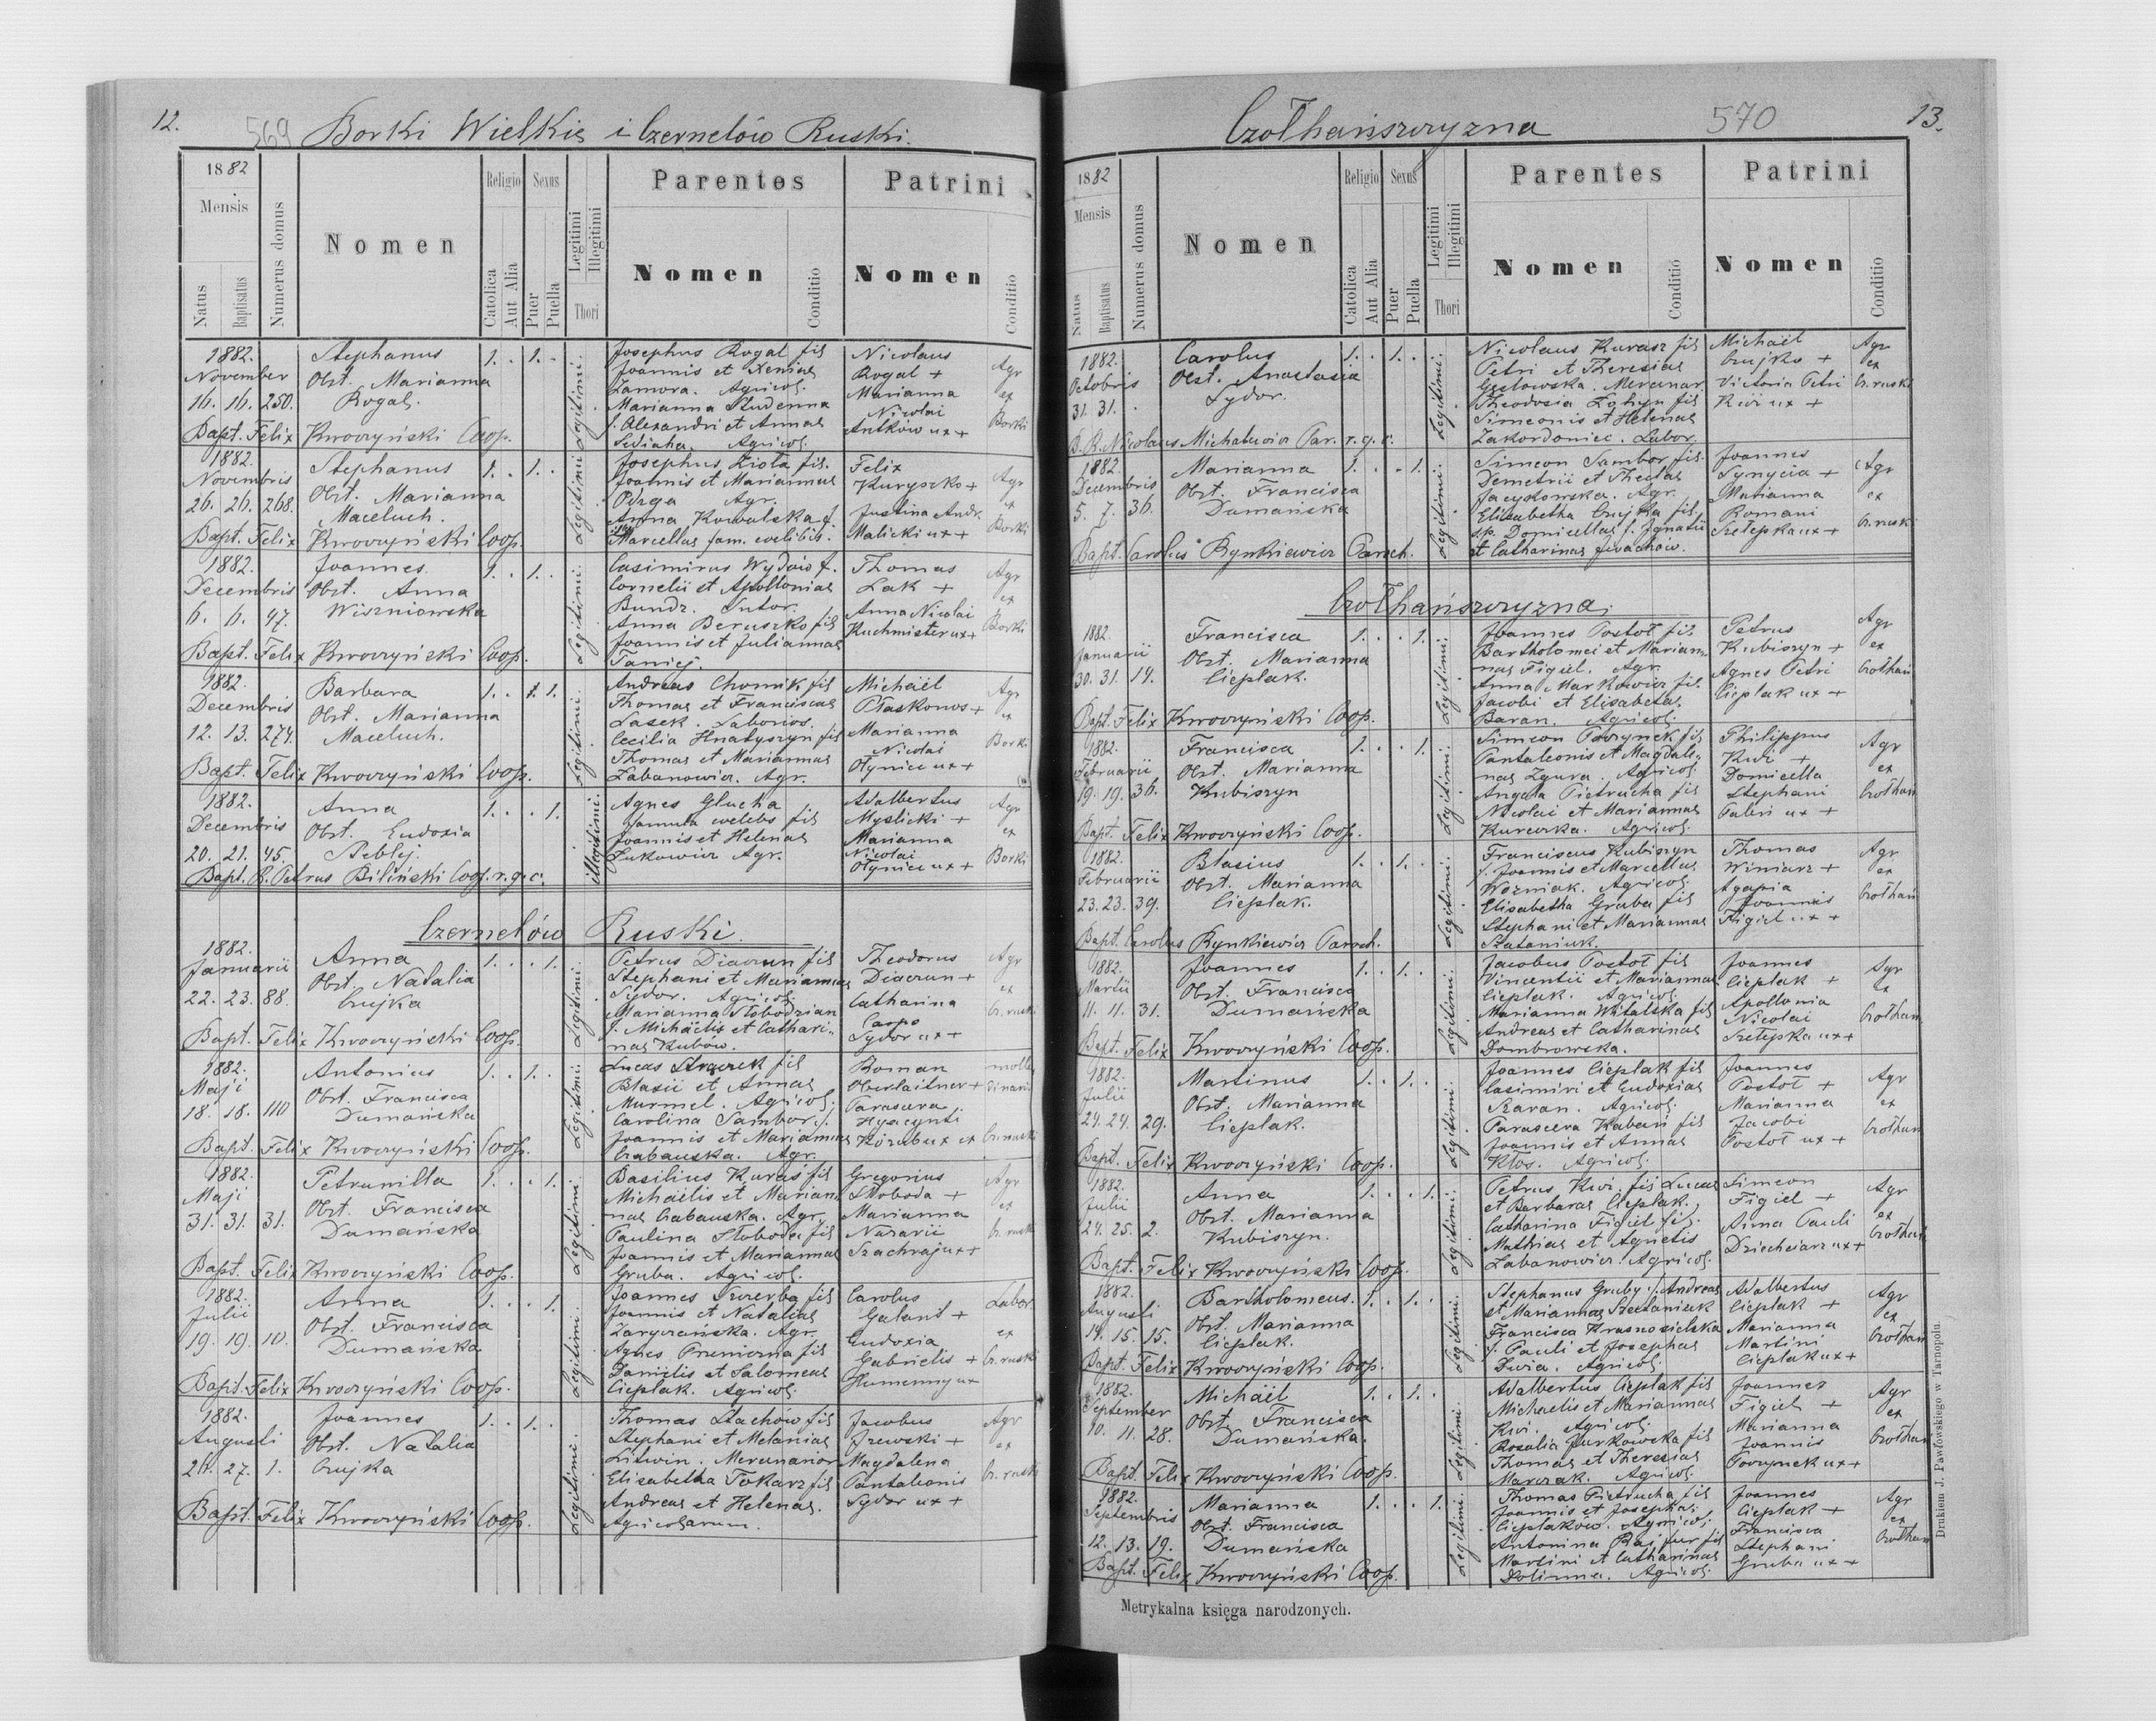 12.
569 Borki Wielkie i Czernelów Ruski.
1882
Mensis
Natus
Baptisatus
Numerus domus
Nomen
Religio
Catolica
Aut Alia
Sexus
Puer
Puella
Legitimi
Illegitimi
Thori
Parentes
Nomen
Conditio
Patrini
Nomen
Conditio
1882.
November
16. 16. 250.
Stephanus
Obst. Marianna
Rogal.
1. . 1. .
Legitimi.
Josephus Rogal fil
Joannis et Xeniae
Zamora. Agricol.
Marianna Studenna
f. Alexandri et Annae
Agricol.
Nicolaus
Rogal +
Marianna
Nicolai
Antków ux +
Agr
ex
Borki
Bapt. Felix Kwoczyński Coop.
1882.
Novembris
26. 26. 268.
Stephanus
Obst. Marianna
Maceluch.
1. . 1. .
Legitimi
Josephus Zioła fil.
Joannis et Mariannae
Pyzga Agr.
Anna Kowalska f.
Marcellae fam. coelibis.
Felix
Kuryszko +
Justina Andr.
Malicki ux +
Agr
ex
Borki
Bapt. Felix Kwoczyński Coop.
1882.
Decembris
6. 6. 47.
Joannes.
Obst. Anna
Wiszniowska
1. . 1. .
Legitimi.
Casimirus Wydów f.
Cornelii et Apolloniae
Bundz. Sutor.
Anna Beruszko fil
Joannis et Juliannae
Taniej.
Thomas
Lak +
Anna Nicolai
Kuchmister ux +
Agr
ex
Borki
Bapt. Felix Kwoczyński Coop.
1882.
Decembris
12. 13. 274.
Barbara
Obst. Marianna
Maceluch.
1. . 1. 1.
Legitimi.
Andreas Chomik fil
Thomas et Franciscae
Lasek. Laborios.
Cecilia Hnatyszyn fil
Thomas et Mariannae
Labanowicz. Agr.
Michael
Płaskonos +
Marianna
Nicolai
Olyniec ux +
Agr
ex
Borki
Bapt. Felix Kwoczyński Coop.
1882.
Decembris
20. 21. 45.
Anna
Obst. Eudoxia
Peblej.
1. . . 1.
illegitimi.
Agnes Glucha
famula coelebs fil
Joannis et Helenae
Łukowicz Agr.
Adalbertus
Myslicki +
Marianna
Nicolai
Olyniec ux +
Agr
ex
Borki
Bapt. R. Petrus Biliński Coop. r. g. c.
Czernelów Ruski
1882.
Januarii
22. 23. 88.
Anna
Obst. Natalia
Czujka
1. . . 1.
Legitimi.
Petrus Diaczun fil
Stephani et Mariannae
Sydor. Agricol.
Marianna Słobodzian
f. Michaelis et Cathari-
nae Kubów.
Theodorus
Diaczun +
Catharina
Carpo
Sydor ux +
Agr
ex
Cz. ruski
Bapt. Felix Kwoczyński Coop.
1882.
Maji
18. 18. 110
Antonius
Obst. Francisca
Dumańska
1. . 1. .
Legitimi.
Lucas fil
Blasii et Annae
Murmel. Agricol.
Carolina Sambor f.
Joannis et Mariannae
Cabanska. Agr.
Roman
Oberlaitner +
Parascera
Hyacynti
Kózub ux +
Cz. ruski
Bapt. Felix Kwoczyński Coop.
1882.
Maji
31. 31. 31.
Petrunilla
Obst. Francisca
Dumańska
1. . . 1.
Legitimi.
Basilius Kuraś fil
Michaelis et Marian
nae Cabanska. Agr.
Paulina Słoboda fil
Joannis et Mariannae
Gruba. Agricol.
Gregorius
Słoboda +
Marianna
Nazarii
Szachraj ux +
Agr
ex
Cz. ruski
Bapt. Felix Kwoczyński Coop.
1882.
Julii
19. 19. 10.
Anna
Obst. Francisca
Dumańska
1. . . 1.
Legitimi.
Joannes Szczerba fil
Joannis et Nataliae
Zaryczańska. Agr.
Agnes fil
Danielis et Salomeae
Cieplak. Agricol.
Carolus
Galant +
Eudoxia
Gabrielis +
Humenny ux
Labor
ex
Cz. ruski
Bapt. Felix Kwoczyński Coop.
1882.
Augusti
26. 27. 1.
Joannes
Obst. Natalia
Czujka
1. . 1. .
Legitimi.
Thomas Stachów fil
Stephani et Melaniae
Litwin. Mercenarior
Elisabetha Tokarz fil
Andreae et Helenae.
Agricolarum.
Jacobus
Jzewski +
Magdalena
Pantaleonis
Sydor ux +
Agr
ex
Cz. ruski
Bapt. Felix Kwoczyński Coop.
Czołhańszczyzna
570
13.
1882
Mensis
Natus
Baptisatus
Numerus domus
Nomen
Religio
Catolica
Aut Alia
Sexus
Puer
Puella
Legitimi
Illegitimi
Thori
Parentes
Nomen
Conditio
Patrini
Nomen
Conditio
1882.
Octobris
31. 31. .
Carolus
Obst. Anastasia
Sydor.
1. . 1. .
Legitimi.
Nicolaus Kurasz fil
Petri et Theresiae
Gęstowska. Mercenar
Theodosia Łohyn fil
Simeonis et Helenae
Zakordoniec. Labor.
Michael
Czujko +
Victoria Petri
Kiż ux +
Agr
ex
Cz. ruski
B. R. Nicolaus Michalewicz Par. r. g. c.
1882.
Decembris
5. 7. 36.
Marianna
Obst. Francisca
Dumańska
1. . . 1.
Legitimi.
Simeon Sambor fil.
Demetrii et Theclae
Jacyszowska. Agr.
Elisabetha Czujka fil.
s/p. Domicellae f. Ignatii
et Catharinae Jwachów.
Joannes
Synycia +
Marianna
Romani
Szełepka ux +
Agr
ex
Cz. ruski
Bapt. Carolus Rynkiewicz Paroch.
Czołhańszczyzna.
1882.
Januarii
30. 31. 14.
Francisca
Obst. Marianna
Cieplak.
1. . . 1.
Legitimi.
Joannes Postoł fil.
Bartholomei et Marian-
nae Figiel. Agr.
Anna Markowicz fil.
Jacobi et Elisabeta.
Baran. Agricol.
Petrus
Kubiszyn +
Agnes Petri
Cieplak ux +
Agr
ex
Czołhań
Bapt. Felix Kwoczyński Coop.
1882.
Februarii
19. 19. 36.
Francisca
Obst. Marianna
Kubiszyn
1. . . 1.
Legitimi.
Simeon Poczynek fil
Pantaleonis et Magdale-
nae Zgura. Agricol.
Angela Pietrucha fil
Nicolai et Mariannae
Kurczka. Agricol.
Philippus
Kiż +
Domicella
Stephani
Paleń ux +
Agr
ex
Czołhań
Bapt. Felix Kwoczyński Coop.
1882.
Februarii
23. 23. 39.
Blasius
Obst. Marianna
Cieplak.
1. . 1. .
Legitimi.
Franciscus Kubiszyn
f. Joannis et Marcellae
Woźniak. Agricol.
Elisabetha Gruba fil
Stephani et Mariannae
Szataniuk.
Thomas
Winiarz +
Agapia
Joannis
Figiel ux +
Agr
ex
Czołhań
Bapt. Carolus Rynkiewicz Paroch.
1882.
Martii
11. 11. 31.
Joannes
Obst. Francisca
Dumańska
1. . 1. .
Legitimi.
Jacobus Postoł fil
Vincentii et Mariannae
Cieplak. Agricol.
Marianna Witalska fil
Andreae et Catharinae
Dombrowska.
Joannes
Cieplak +
Apollonia
Nicolai
Szełepka ux +
Agr
ex
Czołhań
Bapt. Felix Kwoczyński Coop.
1882.
Julii
24. 24. 29.
Martinus
Obst. Marianna
Cieplak.
1. . 1. .
Legitimi.
Joannes Cieplak fil
Casimiri et Eudoxiae
Szaran. Agricol.
Parascera Kabań fil
Joannis et Annae
Kłos. Agricol.
Joannes
Postoł +
Marianna
Jacobi
Postoł ux +
Agr
ex
Czołhań
Bapt. Felix Kwoczyński Coop.
1882.
Julii
24. 25. 2.
Anna
Obst. Marianna
Kubiszyn.
1. . . 1.
Legitimi.
Petrus Kiż. fil Lucae
et Barbarae Cieplak.
Catharina Figiel fil.
Mathiae et Agnetis
Labanowicz. Agricol.
Simeon
Figiel +
Anna Pauli
Dziechciarz ux +
Agr
ex
Czołhań
Bapt. Felix Kwoczyński Coop.
1882.
Augusti
14. 15. 15.
Bartholomeus.
Obst. Marianna
Cieplak.
1. . 1. .
Legitimi.
Stephanus Gruby f. Andreae
et Mariannae Szataniuk
Francisca Krasnosielska
f. Pauli et Josephae
Agricol.
Adalbertus
Cieplak +
Marianna
Martini
Cieplak ux +
Agr
ex
Czołhań
Bapt. Felix Kwoczyński Coop.
1882.
September
10. 11. 28.
Michael
Obst. Francisca
Dumańska.
1. . 1. .
Legitimi.
Adalbertus Cieplak fil
Michaelis et Mariannae
Kiż. Agricol.
Rosalia Jurkowska fil
Thomas et Theresiae
Marczak. Agricol.
Joannes
Figiel +
Marianna
Joannis
Poczynek ux +
Agr
ex
Czołhań
Bapt. Felix Kwoczyński Coop.
1882.
Septembris
12. 13. 19.
Marianna
Obst. Francisca
Dumańska
1. . . 1.
Legitimi.
Thomas Pietrucha fil
Joannis et Josephae
Cieplaków. Agricol.
Antonina fil
Martini et Catharinae
Dolinna. Agricol.
Joannes
Cieplak +
Francisca
Stephani
Gruba ux +
Agr
ex
Czołhań
Bapt. Felix Kwoczyński Coop.
Metrykalna księga narodzonych.
Drukiem J. Pawłowskiego w Tarnopolu.